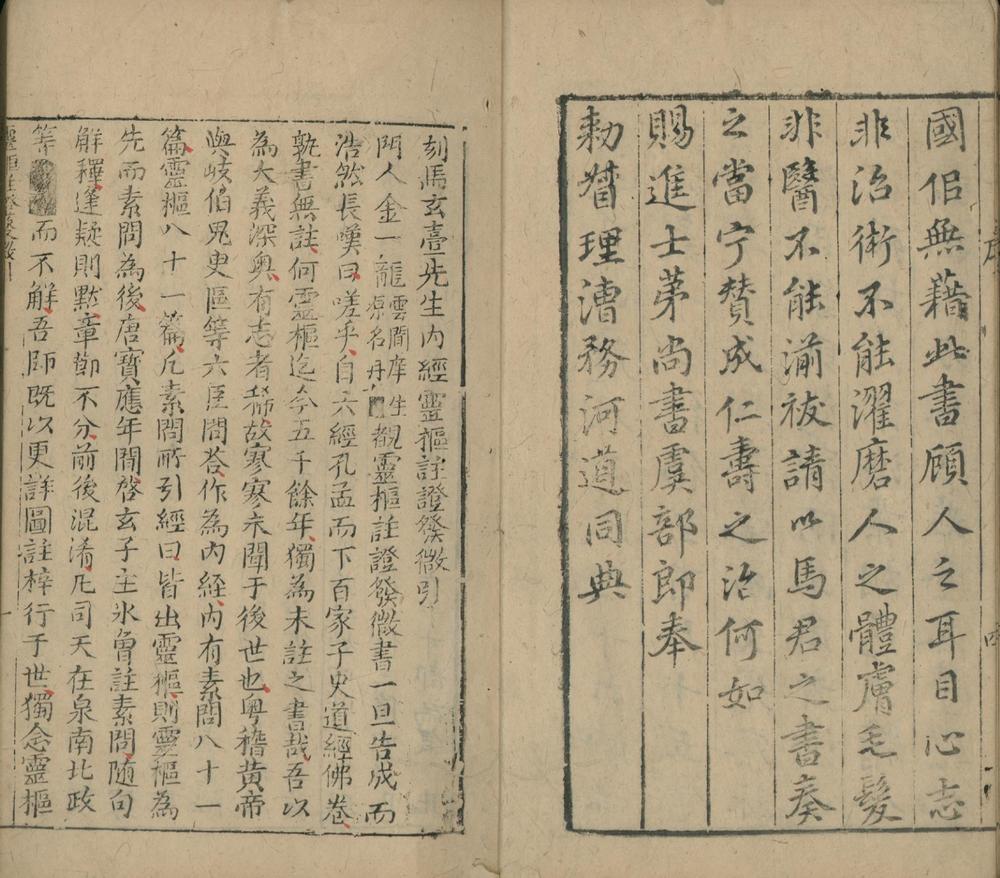 國侶無藉此書顧人之耳目心志
非治術不能濯磨人之體膚毛髮
非醫不能湔祓請以馬君之書奏
之當宁贊成仁壽之治何如
賜進士第尚書虞部郎奉
勅督理漕務河道同典
序
四
刻馬玄臺先生內經靈樞註證發微引
門人金一龍雲間庠生原名丹覩靈樞註證發微書一旦告成而
浩然長嘆曰嗟乎自六經孔孟而下百家子史道經佛卷
孰書無註何靈樞迄今五千餘年獨為未註之書哉吾以
為大義深奧有志者稀故寥寥未聞于後世也粵稽黃帝
與岐伯鬼臾區等六臣問答作為內經內有素問八十一
篇靈樞八十一篇凡素問所引經曰皆出靈樞則靈樞為
先而素問為後唐寶應年間啓玄子王氷曾註素問隨句
解釋逢疑則默章節不分前後混淆凡司天在泉南北政
等而不解吾師既以更詳圖註梓行于世獨念靈樞
一